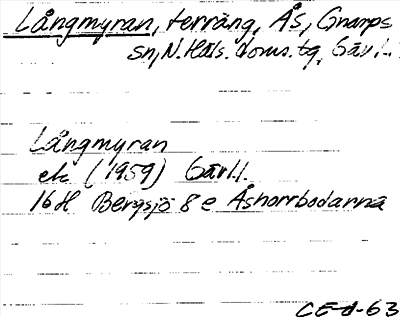 Långmyran, terräng, Ås, Gnarps
sn, N. Häls. doms.tg, Gävl.l.
Långmyran
ek (1959) Gävl.l.
16H Bergsjö 8e Åshorrbodarna
CE-d-63